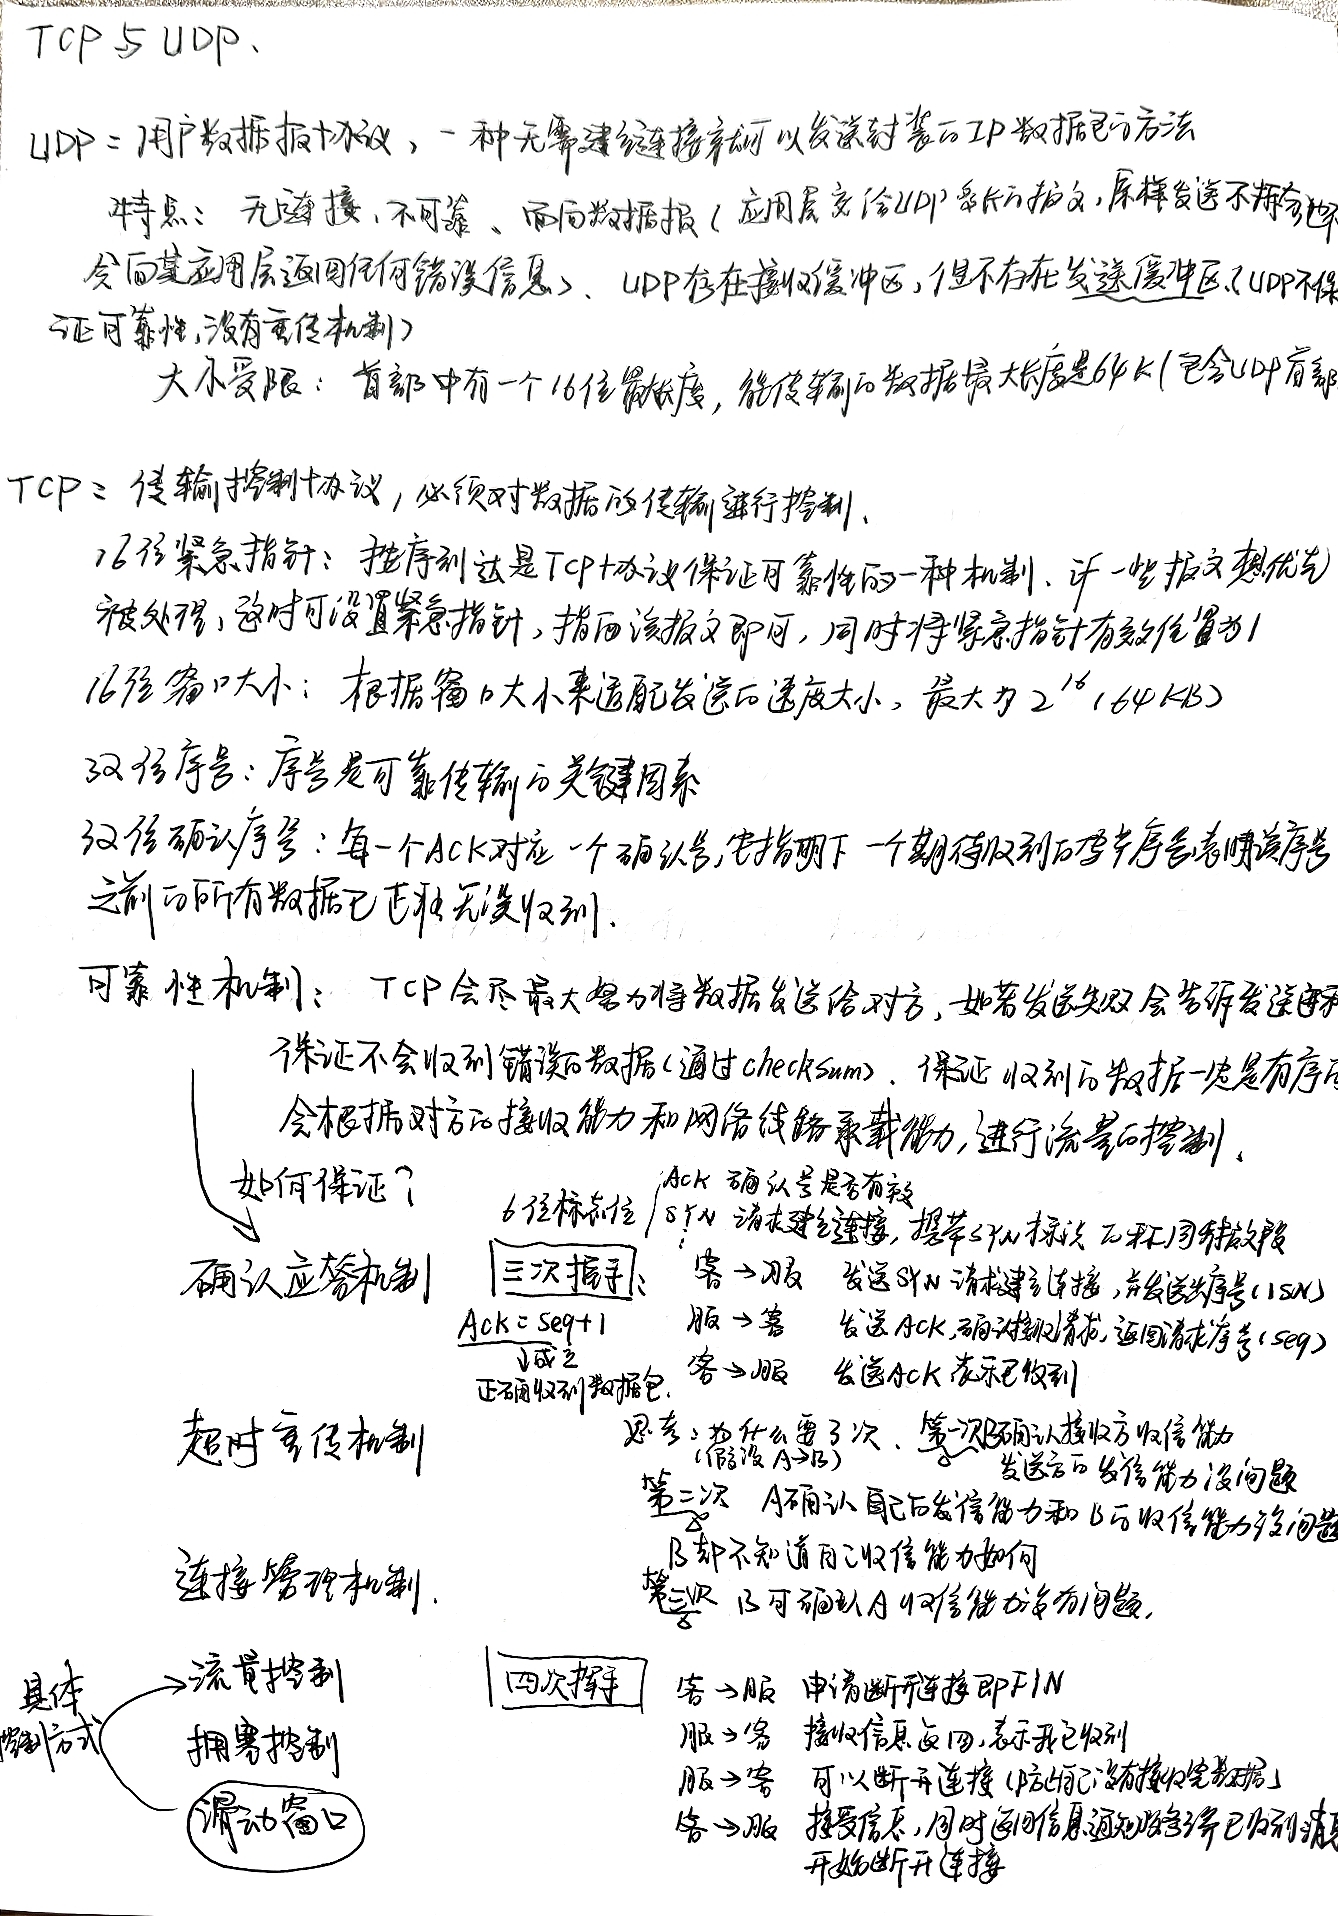 TCP与UDP、
UDP = 用户数据报协议，一种无需建立连接就可以发送封装的IP数据包的方法
特点：无连接、不可靠、面向数据报（应用层交给UDP多长的报文，原样发送不拆分也不
会向其应用层返回任何错误信息）、UDP存在接收缓冲区，但不存在发送缓冲区（UDP不保
证可靠性，没有重传机制）
大小受限：首部中有一个16位最大长度，能传输的数据最大长度是64K（包含UDP首部
TCP = 传输控制协议，必须对数据的传输进行控制、
16位紧急指针：按序到达是TCP协议保证可靠性的一种机制、让一些报文想优先
被处理，这时可设置紧急指针，指向该报文即可，同时将紧急指针有效位置为1
16位窗口大小：根据窗口大小来适配发送的速度大小，最大为2^16（64KB）
32位序号：序号是可靠传输的关键因素
32位确认序号：每一个ACK对应一个确认号，它指明下一个期待收到的字节序号，表明该序号
之前的所有数据已正确无误收到、
可靠性机制：TCP会尽最大努力将数据发送给对方，如若发送失败会告诉发送
保证不会收到错误的数据（通过checksum）、保证收到的数据一定是有序的
会根据对方的接收能力和网络线路承载能力，进行流量的控制、
如何保证？
6位标志位 ACK 确认号是否有效
SYN 请求建立连接，携带SYN标识的称同步报文段
确认应答机制
三次握手：客→服 发送SYN请求建立连接，并发送出序号（ISN）
Ack = seq+1 服→客 发送ACK，确认接收请求，返回请求序号（seq）
↓成立
正确收到数据包、 客→服 发送ACK表示已收到
超时重传机制
思考：为什么要3次、第一次B确认接收方收信能力
（假设A→B） 发送方的发信能力没问题
第二次 A确认自己的发信能力和B的收信能力没问题
B却不知道自己收信能力如何
连接管理机制、
第三次 B可确认A收信能力没有问题、
具体
控制方式
流量控制
拥塞控制
滑动窗口
四次挥手 客→服 申请断开连接即FIN
服→客 接收信息返回，表示我已收到
服→客 可以断开连接（防止自己没有接收完数据）
客→服 接受信息，同时返回信息通知服务端已收到消息
开始断开连接